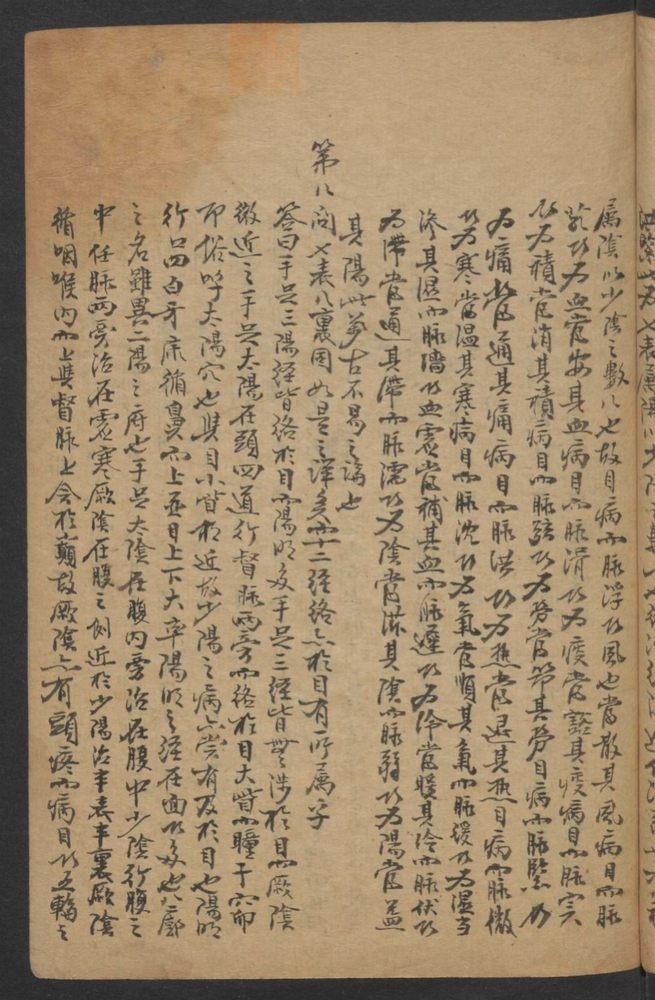 屬陰以少陰之數八也故目病而脈浮乃風也當散其風病目而脈
芤乃為血當安其血病目而脈滑乃為痰當豁其痰病目而脈實
乃為積當消其積病目而脈弦乃為勞當節其勞目病而脈緊乃
為痛當通其痛病目而脈洪乃為熱當退其熱目病而脈微
乃為寒當溫其寒病目而脈沈乃為氣當順其氣而脈緩乃為濕當
滲其濕而脈濇乃血虛當補其血而脈遲乃為冷當暖其冷而脈伏乃
為滯當通其滯而脈濡乃為陰當淋其陰而脈弱乃為陽當益
其陽此萬古不易之論也
第八問七表八裏因如是之詳矣而十二經絡亦於目有所屬乎
答曰手足三陽經皆絡於目而陽明多手足三經皆無涉於目而厥陰
微近之手足太陽在頭四道行督脈兩旁而絡於目大眥而瞳子宂命
即俗呼太陽穴也與目小眥相近故少陽之病亦嘗有及於目也陽明
行四白牙床循鼻而上至目上下大率陽明之經在面乃多也八廓
之名雖異三陽之府也手足太陰在腹內旁治在腹中少陰行腹之
中任脈兩旁治在虛寒厥陰在腹之側近於少陽治半表半裏厥陰
循咽喉內而上與督脈上會於巔故厥陰亦有頭疼而病目乃五輪之